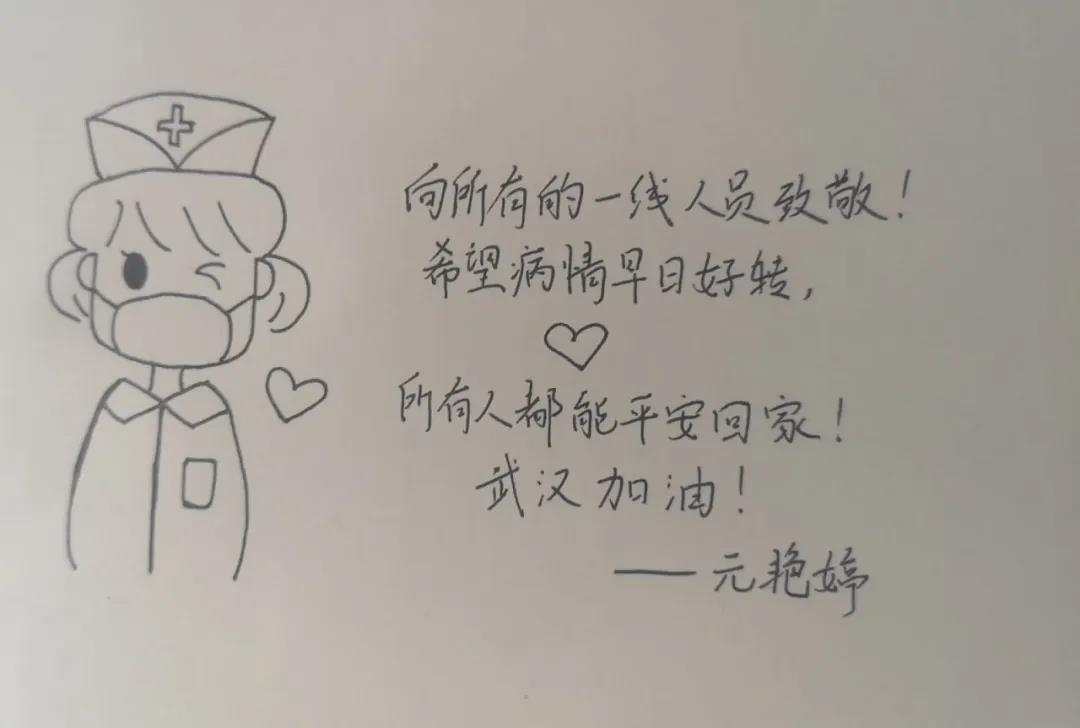 向所有的一线人员致敬！
希望病情早日好转，
所有人都能平安回家！
武汉加油！
——元艳婷